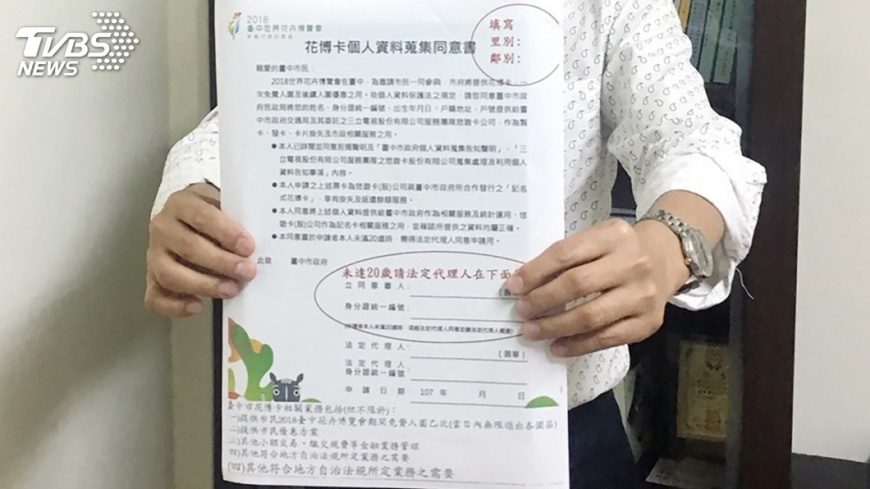 TVBS
NEWS
2018
臺中世界花卉博覽會
填寫
里別：
鄰別：
花博卡個人資料蒐集同意書
親愛的臺中市民：
2018世界花卉博覽會在臺中，為邀請市民一同參與，市府將提供花博卡，一
次免費入園及後續入園優惠之用。依個人資料保護法之規定，請您同意臺中市政
府民政局將您的姓名、身分證統一編號、出生年月日、戶籍地址、戶號提供給臺
中市政府交通局及其委託之三立電視股份有限公司服務團隊之悠遊卡公司，作為製
卡、發卡、卡片掛失及市政相關服務之用。
●本人已詳閱並同意前揭聲明及「臺中市政府個人資料蒐集告知聲明」、「三
立電視股份有限公司服務團隊之悠遊卡股份有限公司蒐集處理及利用個人
資料告知事項」內容。
●本人申請之上述票卡為悠遊卡(股)公司與臺中市政府所合作發行之「記名
式花博卡」，享有掛失及返還餘額服務。
●本人同意將上述個人資料提供給臺中市政府作為相關服務及統計運用，悠
遊卡(股)公司作為記名卡相關服務之用，並確認所提供之資料均屬正確。
●本同意書於申請者本人未滿20歲時，需得法定代理人同意申請用。
此致 臺中市政府
未達20歲請法定代理人在下面
立同意書人：
身分證統一編號：
法定代理人： (簽章)
法定代理人
身分證統一編號：
申請日期： 107 年 月 日
臺中市花博卡相關業務包括(但不限於)：
一)提供市民2018臺中花卉博覽會期間免費入園乙次(當日內無限進出各園區)
二)提供市民優惠方案
三)其他小額交易、繳交規費等金融業務管理
四)其他符合地方自治法規所定業務之需要
(四)其他符合地方自治法規所定業務之需要